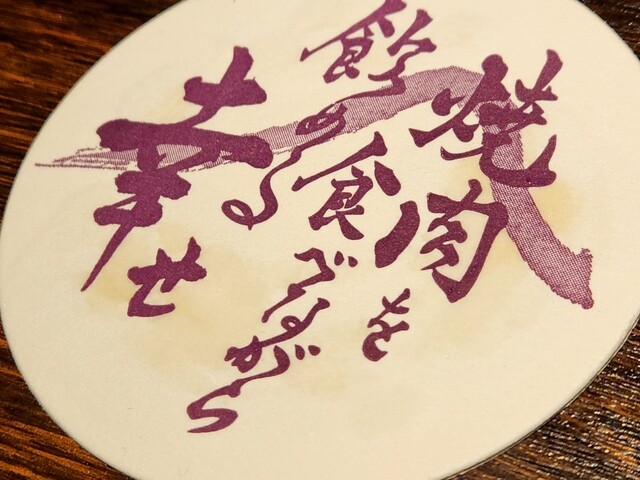 焼肉を
食べながら
飲める
幸せ